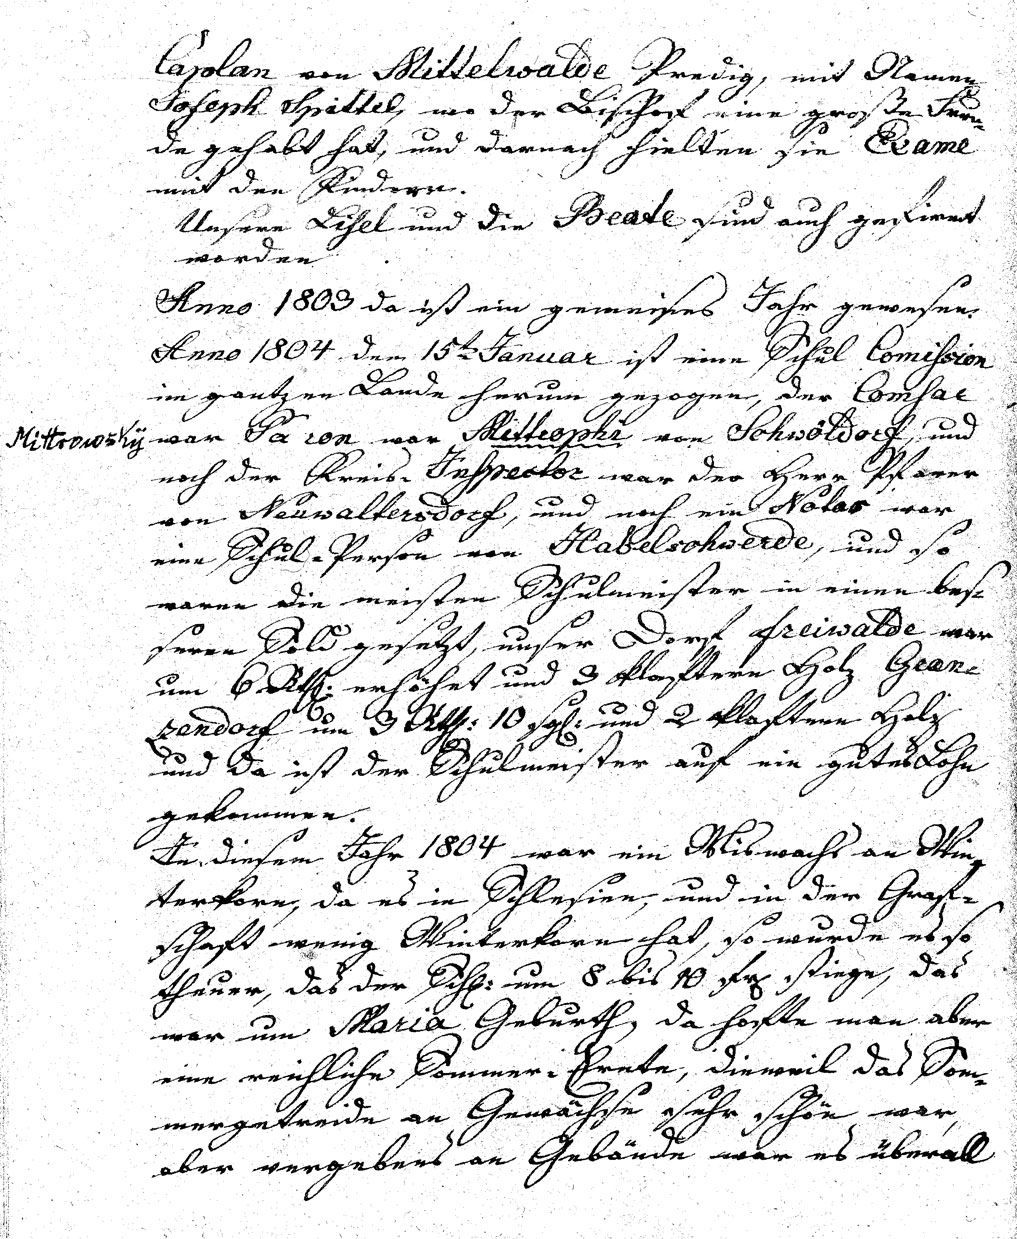 Caplan von Mittelwalde Predig, mit Namen
Joseph Spittel, wo der Bischof eine große Freu-
de gehabt hat, und darnach hielten sie Exame
mit den Kindern.
Unsere Lisel und die Beate sind auch gefirmt
worden
Anno 1803 da ist ein gemeines Jahr gewesen.
Anno 1804 den 15t Januar ist eine Schul Comission
im gantzen Lande herum gezogen, der Comsar
Mittrowskÿ war Baron von Mittrophi von Schwöldorf, und
noch der Kreis-Inspector war der Herr Pfarer
von Neuwaltersdorf, und noch ein Notar war
eine Schul-Person von Habelschwerde, und so
waren die meisten Schulmeister in einen bes-
seren Sold gesetzt, unser Dorf freiwalde war
um 6 Rth: erhöhet und 3 klaftern Holz Gran-
zendorf um 3 Rth: 10 sgl: und 2 klaftern Holz
und da ist der Schulmeister auf ein gutes Lohn
gekommen.
In diesem Jahr 1804 war ein Miswachs an Win-
terkorn, da es in Schlesien, und in der Graf-
schaft wenig Winterkorn hat, so wurde es so
theuer, das der Schl: um 8 bis 10 fx stiege, das
war um Maria Geburth, da hofte man aber
eine reichliche Sommer-Ernte, dieweil das Som-
mergetreide an Gewächse sehr schön war,
aber vergebens an Gebäude war es überall